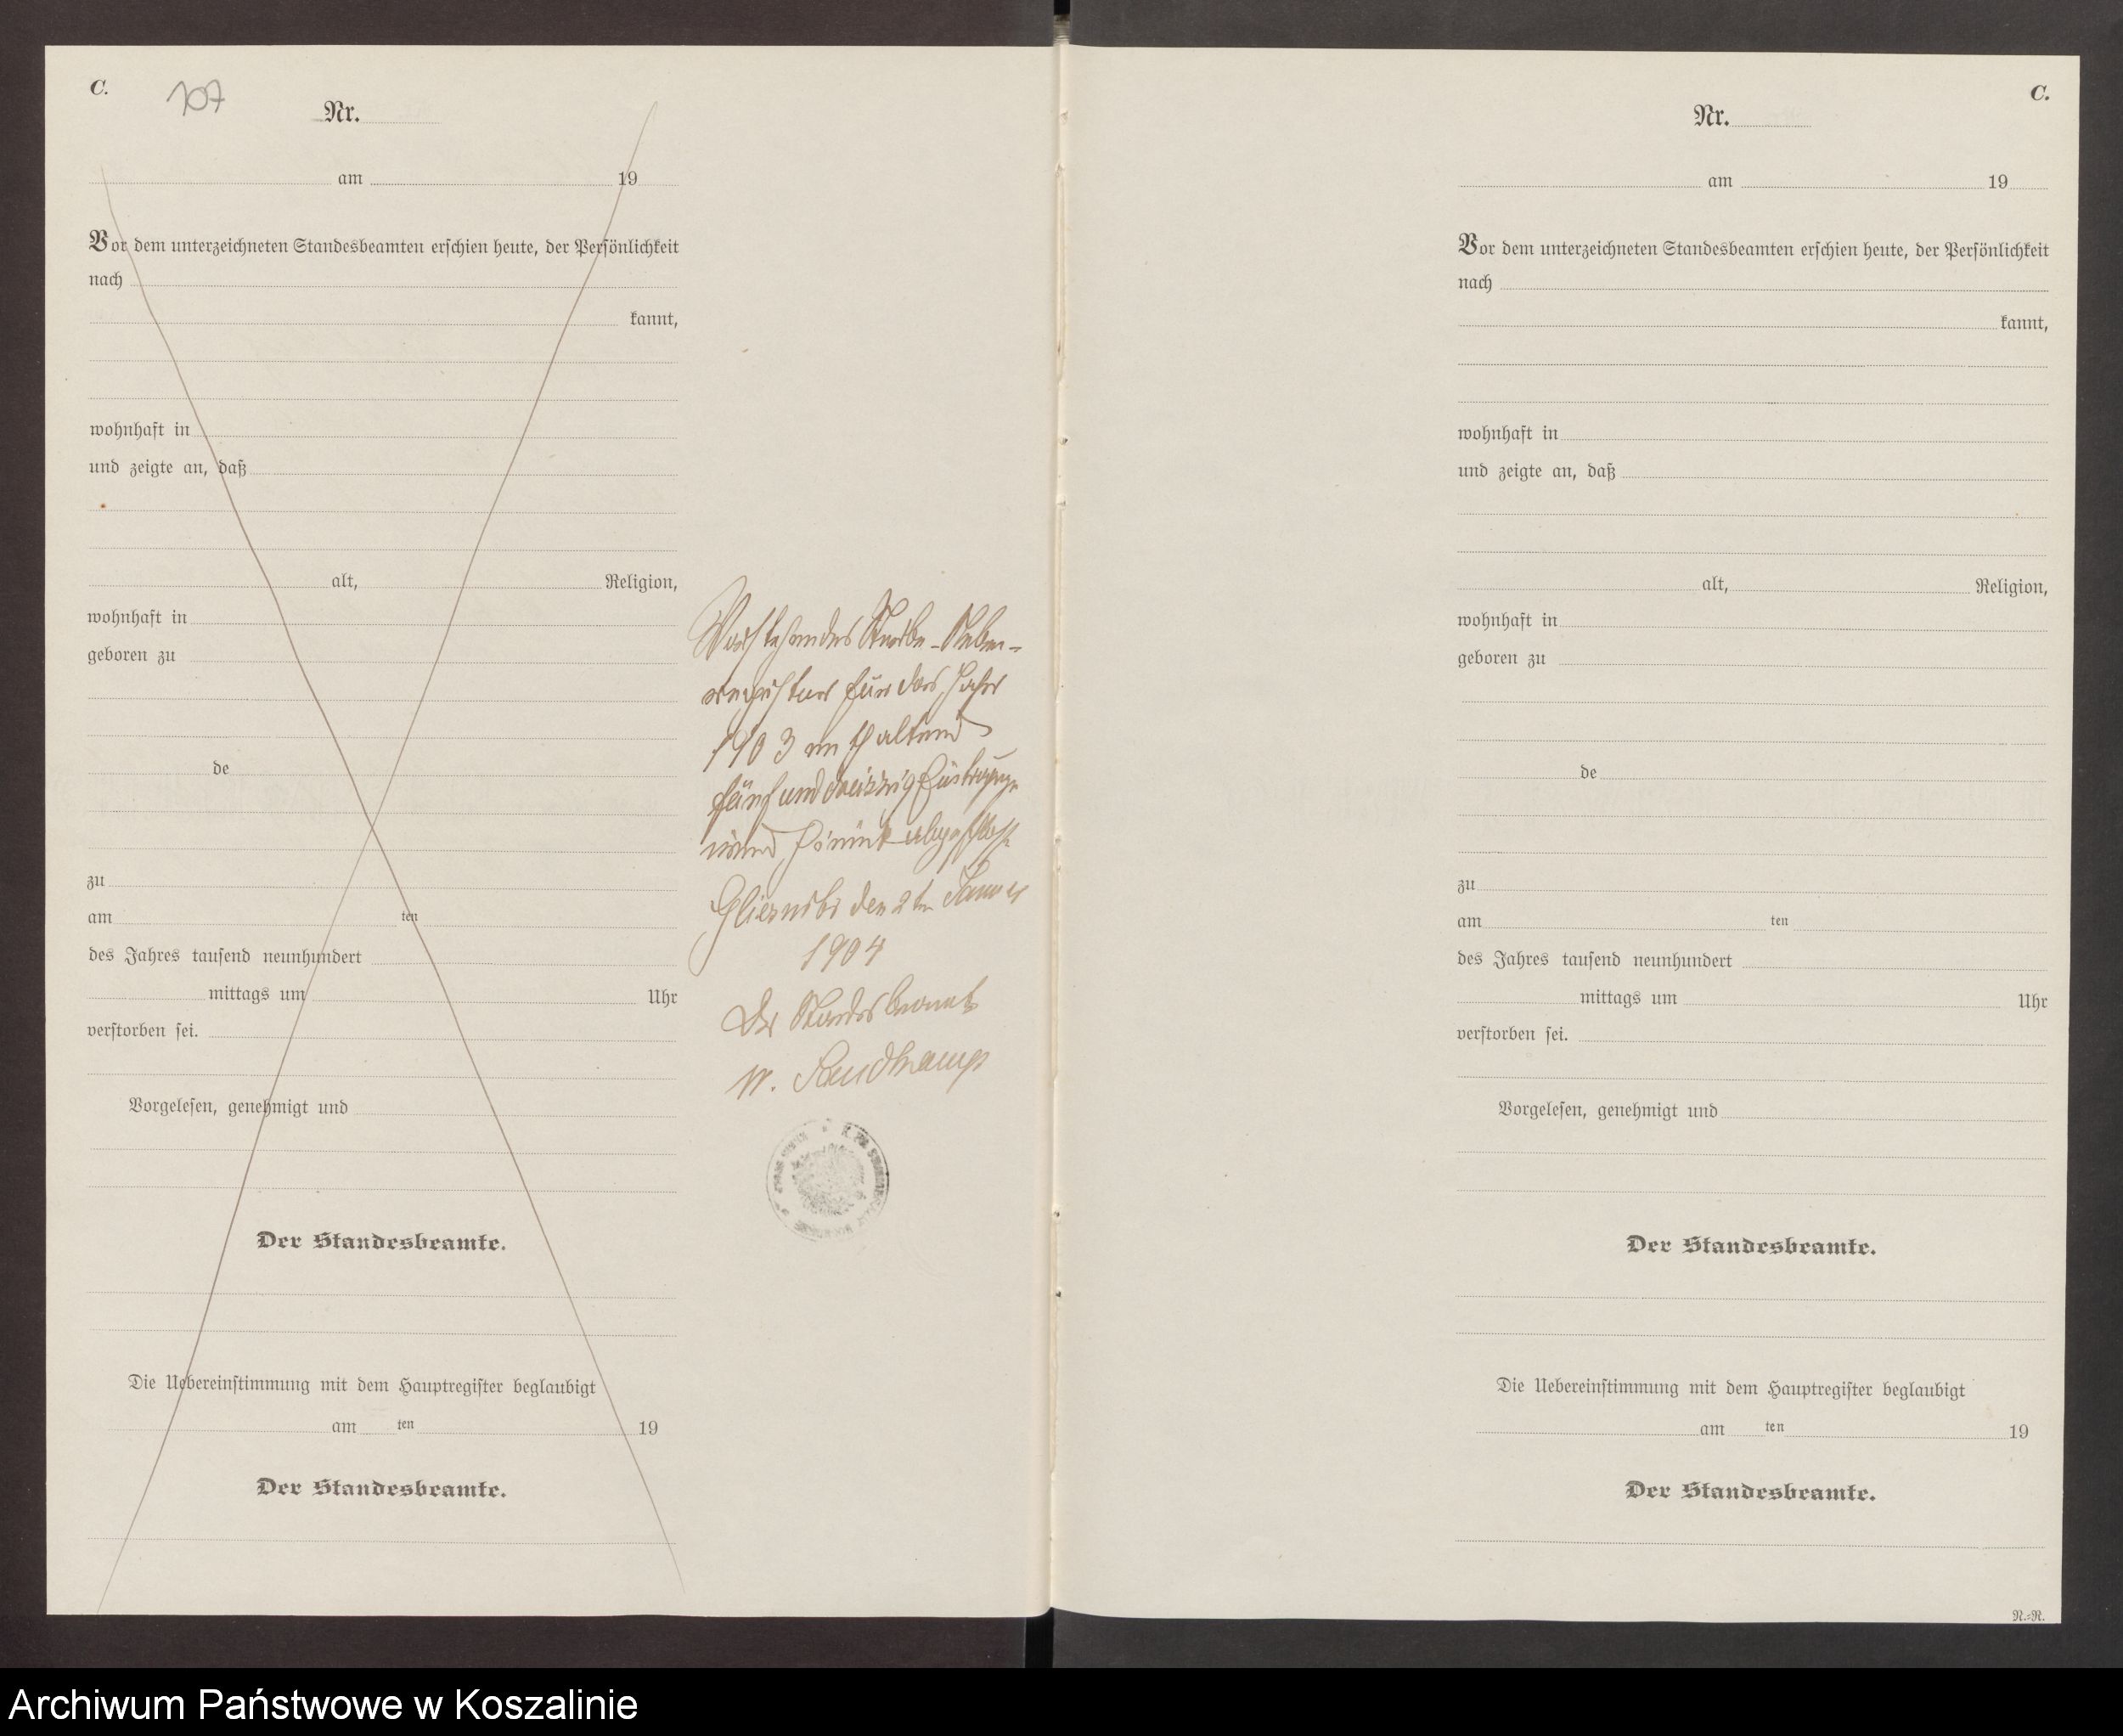 C.
107
Nr.
am 19
Vor dem unterzeichneten Standesbeamten erschien heute, der Persönlichkeit
nach
kannt,
wohnhaft in
und zeigte an, daß
alt, Religion,
wohnhaft in
geboren zu
de
zu
am ten
des Jahres tausend neunhundert
mittags um Uhr
verstorben sei.
Vorgelesen, genehmigt und
Der Standesbeamte.
Die Uebereinstimmung mit dem Hauptregister beglaubigt
am ten 19
Der Standesbeamte.
Vorstehendes Sterbe-Neben-
register für das Jahr
1903 enthaltend
fünf und dreizzig
wird
den 2ten Januar
1904
Der Standesbeamte
W. Sandkamp
C.
Nr.
am 19
Vor dem unterzeichneten Standesbeamten erschien heute, der Persönlichkeit
nach
kannt,
wohnhaft in
und zeigte an, daß
alt, Religion,
wohnhaft in
geboren zu
de
zu
am ten
des Jahres tausend neunhundert
mittags um Uhr
verstorben sei.
Vorgelesen, genehmigt und
Der Standesbeamte.
Die Uebereinstimmung mit dem Hauptregister beglaubigt
am ten 19
Der Standesbeamte.
N.=R.
Archiwum Państwowe w Koszalinie